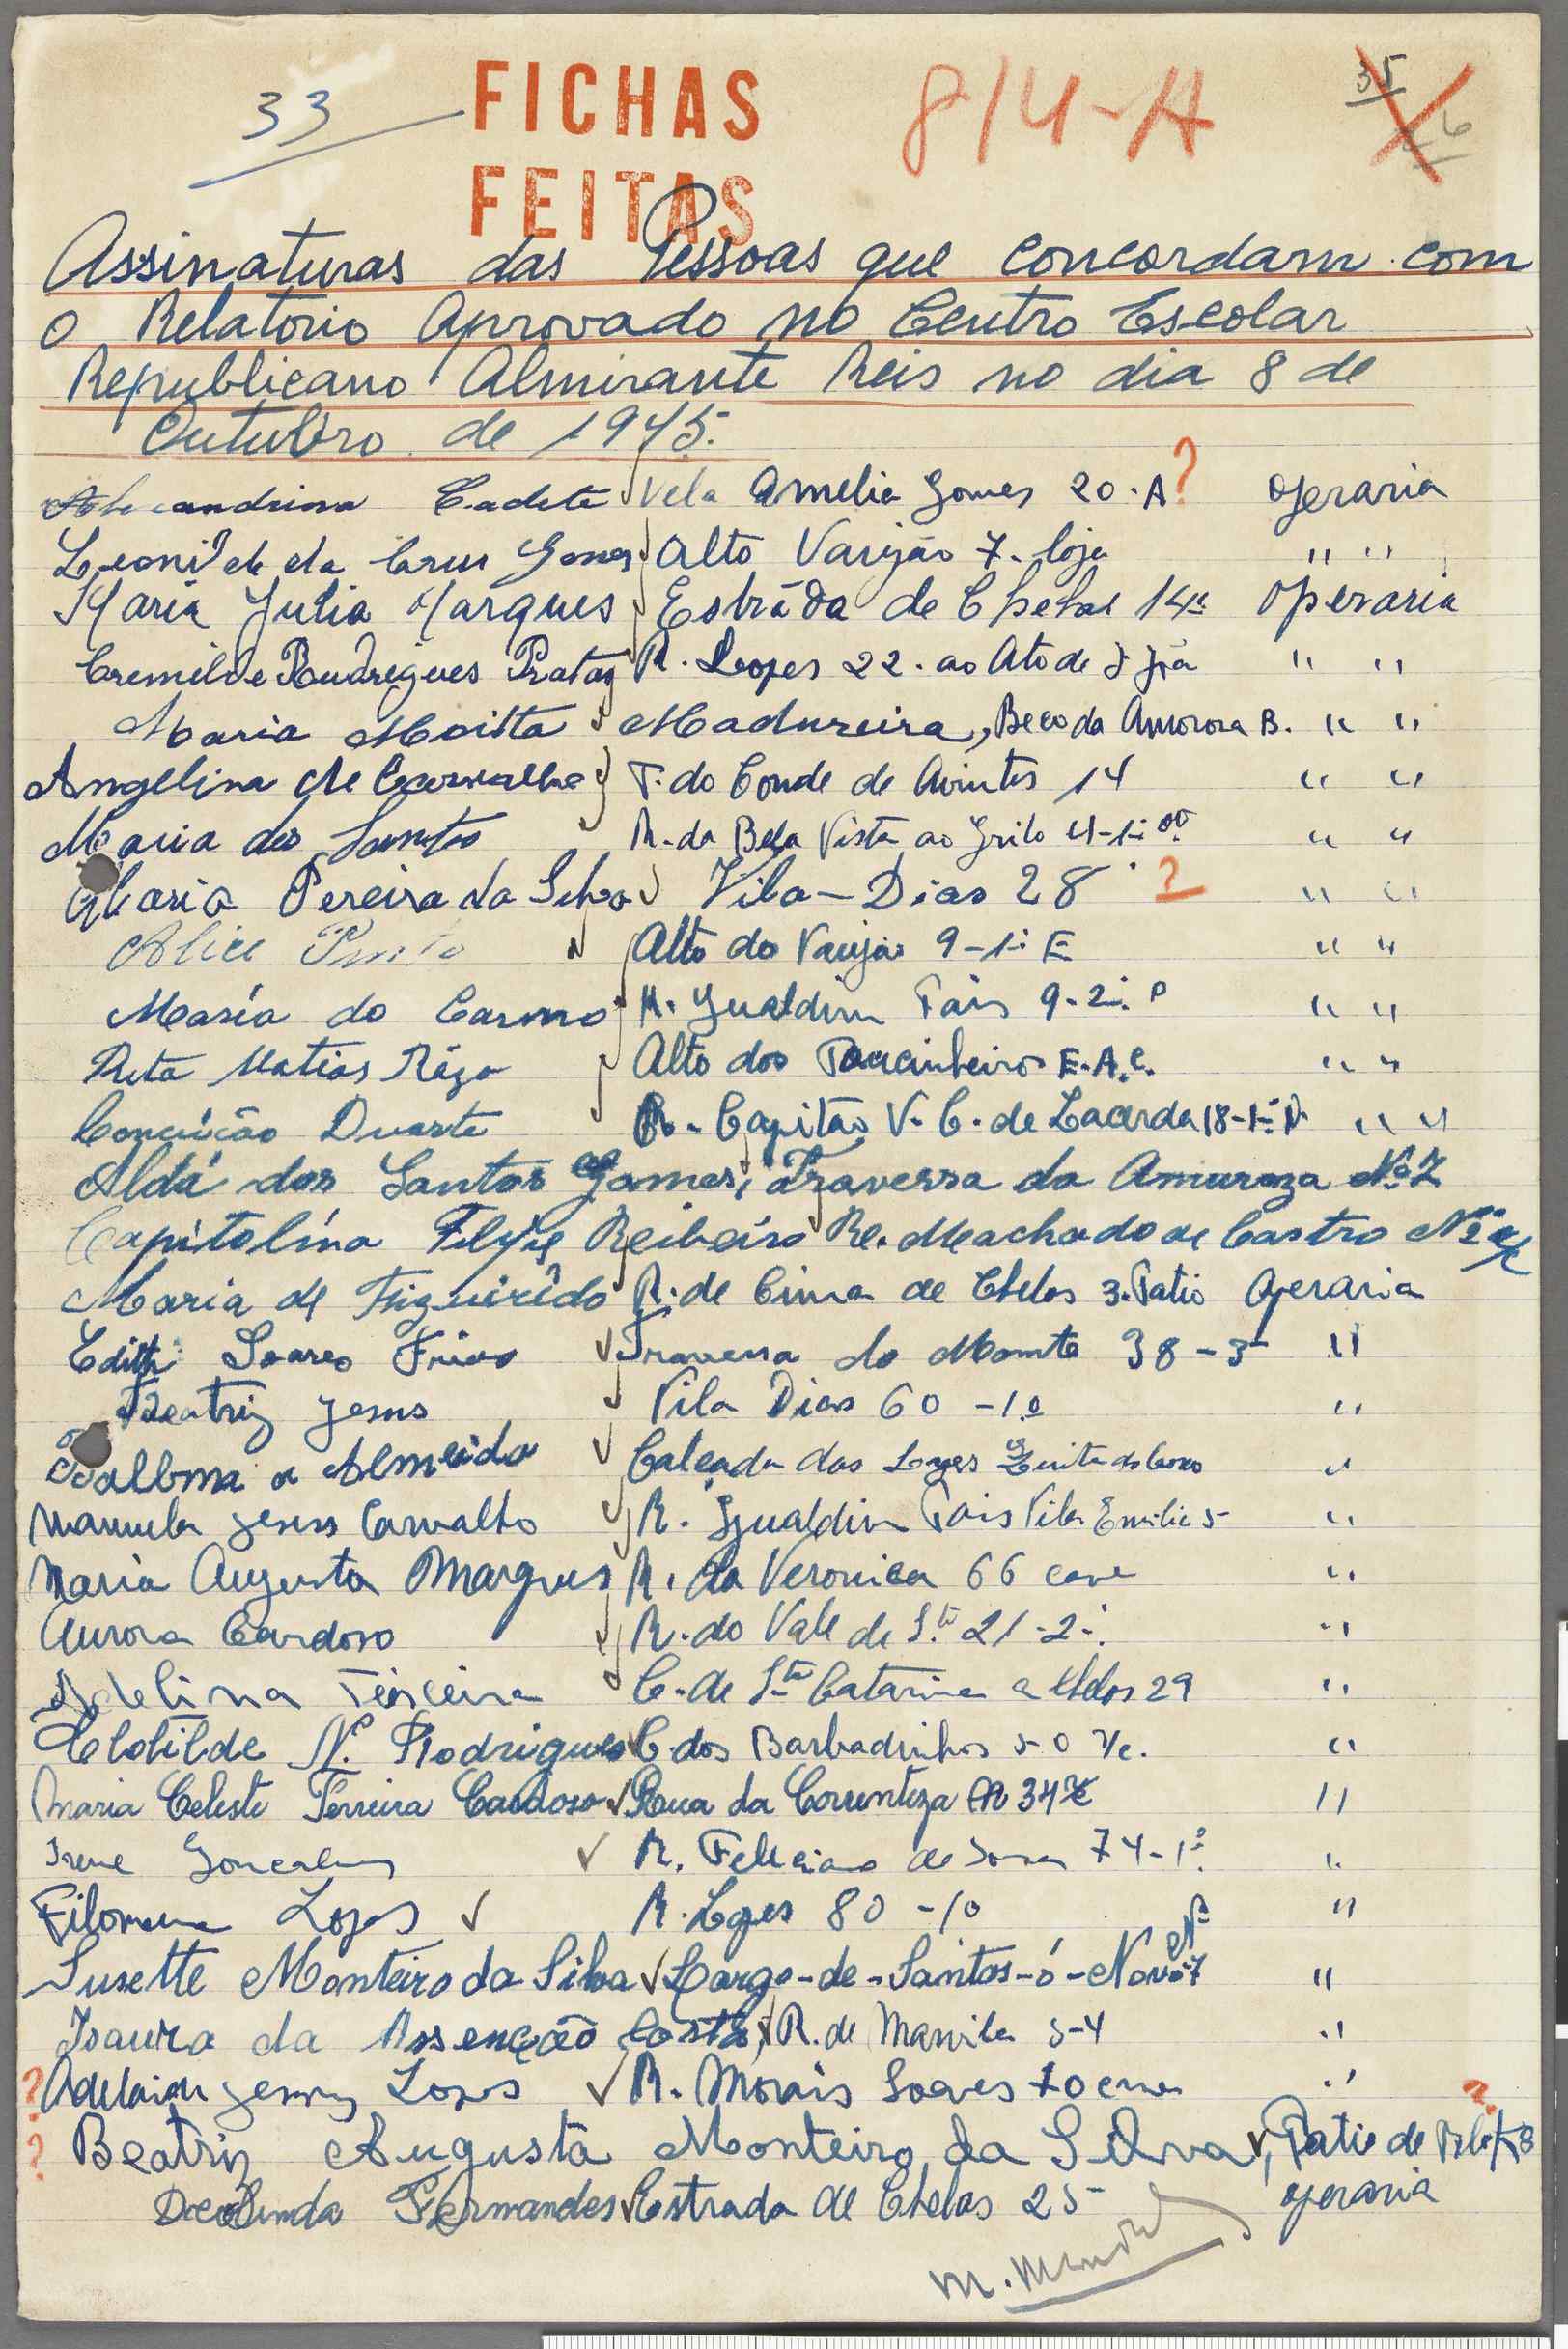 33 FICHAS 814-A 35
FEITAS
Assinaturas das Pessoas que concordam com
o Relatorio Aprovado no Centro Escolar
Republicano Almirante Reis no dia 8 de
Outubro de 1945.
Cadete Vila Amelia Gomes 20-A ? operaria
Leonilde da Cruz Gomes Alto Varejão 7-loja " "
Maria Julia Marques Estráda de Chelas 14 Operaria
Cremilde Roudrigues Pratas R. Lopes 22. ao Ato de " "
Maria Moitta Madureira, Beco da Amorora B. " "
Angelina de Carvalho T. do Conde de Avintes 14 " "
Maria dos Santos R. da Bela Vista ao Grilo " "
Maria Pereira da Silva Vila-Dias 28 ? " "
Alice Pinto Alto do Varejão 9-1º E " "
Maria do Carmo R. Gualdim Pais 9-2º " "
Rita Matias Alto dos Toucinheiros E.A.C. " "
Conceição Duarte R. Capitão V. C. de Lacerda 18-1º " "
Aldá dos Santos Gomes, Travessa da Amuroza Nº 7
Capitolina Filipe Ribeiro R. Machado de Castro Nº
Maria de Figueirêdo R. de Cima de Chelas 3. Patio Operaria
Edith Soares Frias Travessa do Monte 38-3 "
Beatriz Jesus Vila Dias 60-1º "
Almeida Calçada das Lages "
Manuela Jesus Carvalho R. Gualdim Pais Vila Emilia 5 "
Maria Augusta Marques R. da Veronica 66 cave "
Aurora Cardoso R. do Vale de Stº 21-2º "
Adelina Teixeira C. de Sta Catarina a Chelas 29 "
Clotilde N. Rodrigues C. dos Barbadinhos 50 r/c. "
Maria Celeste Ferreira Cardoso Rua da Correnteza 34 "
Irene Gonçalves R. Feliciano de Sousa 74-1º "
Filomena Lopes R. Lopes 80-1º "
Susette Monteiro da Silva Largo-de-Santos-ó-Novo Nº 7 "
Isaura da Assenção Costa, R. de Manila 5-4 "
? Adelaide Jesus Lopes R. Morais Soares "
? Beatriz Augusta Monteiro da Silva, Patio de ?
Deolinda Fernandes Estrada de Chelas 25 operaria